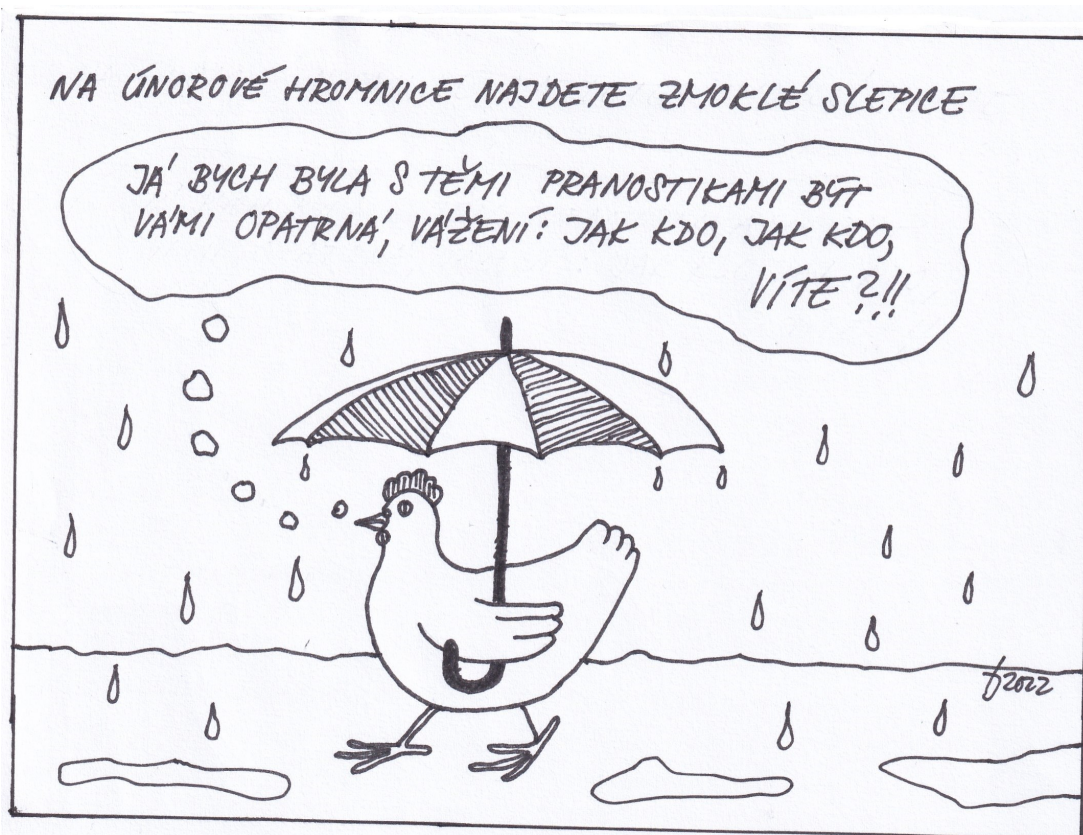 NA ÚNOROVÉ HROMNICE NAJDETE ZMOKLÉ SLEPICE
JÁ BYCH BYLA S TĚMI PRANOSTIKAMI BÝT
VÁMI OPATRNÁ, VÁŽENÍ: JAK KDO, JAK KDO,
VÍTE?!!
2022